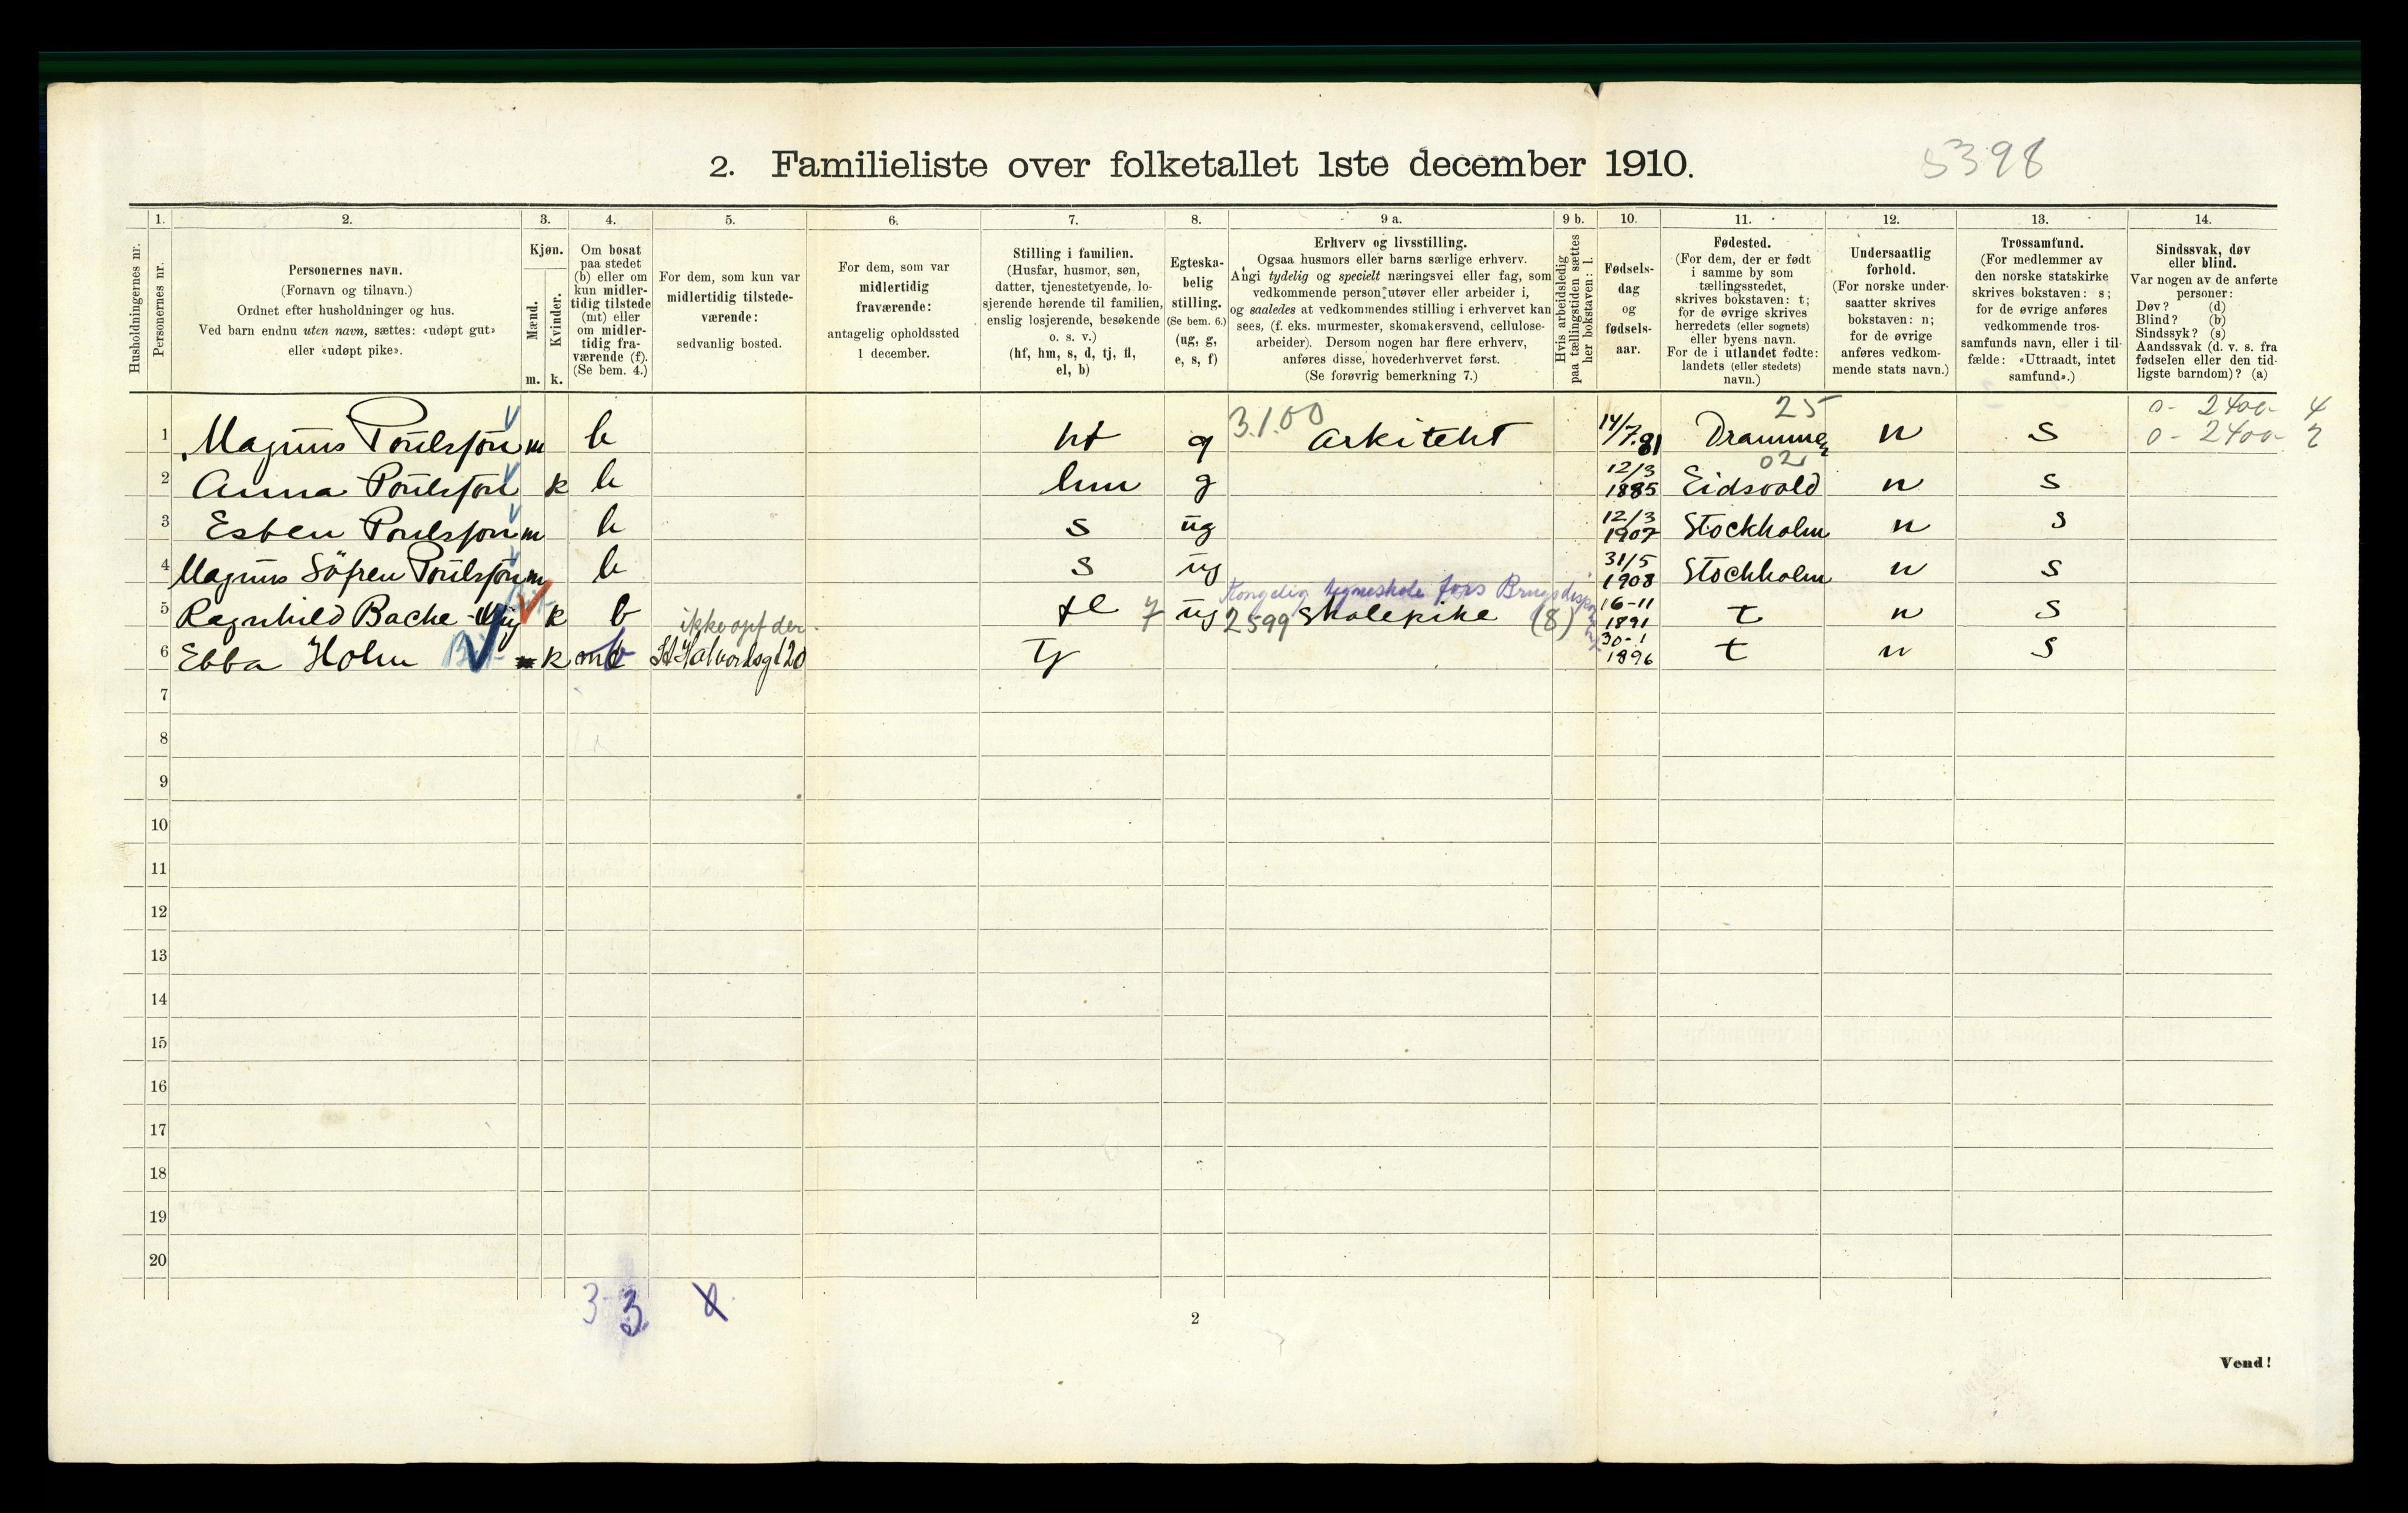 2. Familieliste over folketallet 1ste december 1910.
5398
1. 2. 3. 4. 5. 6. 7. 8. 9 a. 9 b. 10. 11. 12. 13. 14.
Husholdningernes nr.
Personernes nr.
Personernes navn.
(Fornavn og tilnavn.)
Ordnet efter husholdninger og hus.
Ved barn endnu uten navn, sættes: «udøpt gut»
eller «udøpt pike».
Kjøn.
Mænd.
Kvinder.
m. k.
Om bosat
paa stedet
(b) eller om
kun midler-
tidig tilstede
(mt) eller
om midler-
tidig fra-
værende (f).
(Se bem. 4.)
For dem, som kun var
midlertidig tilstede-
værende:
sedvanlig bosted.
For dem, som var
midlertidig
fraværende:
antagelig opholdssted
1 december.
Stilling i familien.
(Husfar, husmor, søn,
datter, tjenestetyende, lo-
sjerende hørende til familien,
enslig losjerende, besøkende
o. s. v.)
(hf, hm, s, d, tj, fl,
el, b)
Egteska-
belig
stilling.
(Se bem. 6.)
(ug, g,
e, s, f)
Erhverv og livsstilling.
Ogsaa husmors eller barns særlige erhverv.
Angi tydelig og specielt næringsvei eller fag, som
vedkommende person utøver eller arbeider i,
og saaledes at vedkommendes stilling i erhvervet kan
sees, (f. eks. murmester, skomakersvend, cellulose-
arbeider). Dersom nogen har flere erhverv,
anføres disse, hovederhvervet først.
(Se forøvrig bemerkning 7.)
Hvis arbeidsledig
paa tællingstiden sættes
her bokstaven: l.
Fødsels-
dag
og
fødsels-
aar.
Fødested.
(For dem, der er født
i samme by som
tællingsstedet,
skrives bokstaven: t;
for de øvrige skrives
herredets (eller sognets)
eller byens navn.
For de i utlandet fødte:
landets (eller stedets)
navn.)
Undersaatlig
forhold.
(For norske under-
saatter skrives
bokstaven: n;
for de øvrige
anføres vedkom-
mende stats navn.)
Trossamfund.
(For medlemmer av
den norske statskirke
skrives bokstaven: s;
for de øvrige anføres
vedkommende tros-
samfunds navn, eller i til-
fælde: «Uttraadt, intet
samfund».)
Sindssvak, døv
eller blind.
Var nogen av de anførte
personer:
Døv? (d)
Blind? (b)
Sindssyk? (s)
Aandssvak (d. v. s. fra
fødselen eller den tid-
ligste barndom)? (a)
25 0- 2400- 4
1 Magnus Poulsson m b hf g 3.1.00 Arkitekt 14/7.81 Drammen n s 0- 2400- 2
02
2 Anna Poulsson k b hm g 12/3 1885 Eidsvold n s
3 Esben Poulsson m b s ug 12/3 1907 Stockholm n s
4 Magnus Söfren Poulsson m b s ug 31/5 1908 Stockholm n s
Kongelig tegneskole
5 Ragnhild Bache-Wiig k b fl 7 ug 2599 skolepike (8) 16-11 1891 t n s
ikke opf der.
6 Ebba Holm k mt b St Halvordsgt 20 Tj 30-1 1896 t n s
7
8
9
10
11
12
13
14
15
16
17
18
19
20
3 3
2
Vend!